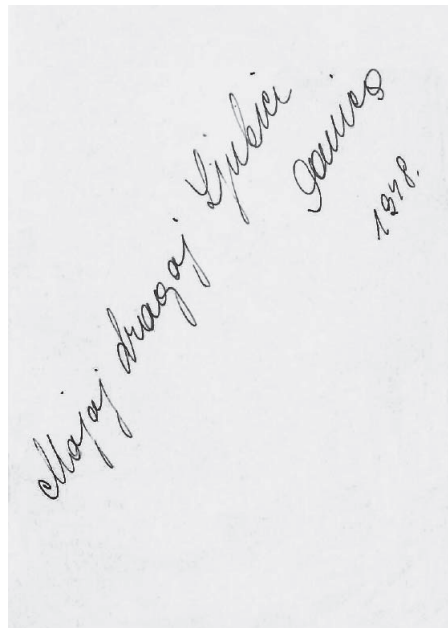 Mojoj dragoj Ljubici
Danica
1948.